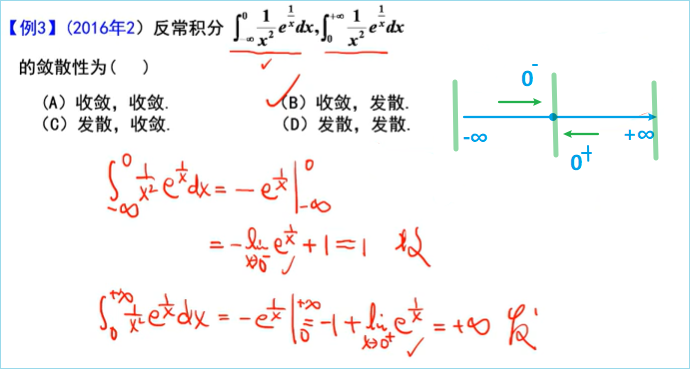 【例3】(2016年2) 反常积分 ∫_{-∞}^{0} 1/x² e^{1/x}dx, ∫_{0}^{+∞} 1/x² e^{1/x}dx
的敛散性为( )
(A) 收敛，收敛. (B) 收敛，发散.
(C) 发散，收敛. (D) 发散，发散.
0⁻
-∞ +∞
0⁺
∫_{-∞}^{0} 1/x² e^{1/x}dx = -e^{1/x}|_{-∞}^{0}
= -lim_{x→0⁻} e^{1/x} + 1 = 1 收
∫_{0}^{+∞} 1/x² e^{1/x}dx = -e^{1/x}|_{0}^{+∞} = -1 + lim_{x→0⁺} e^{1/x} = +∞